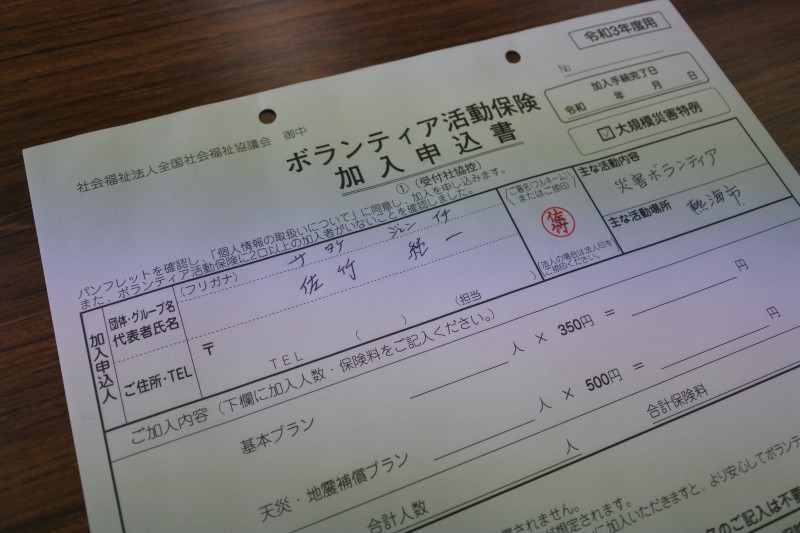 令和3年度用
No
加入手続完了日
令和 年 月 日
☑大規模災害特例
社会福祉法人全国社会福祉協議会 御中
ボランティア活動保険
加入申込書
①(受付社協控)
パンフレットを確認し、「個人情報の取扱いについて」に同意し、加入を申し込みます。
また、ボランティア活動保険に2口以上の加入者がいないことを確認しました。
加入申込人
団体・グループ名
代表者氏名
(フリガナ)
サタケ ジュンイチ
佐竹 純一
(担当 )
ご署名(フルネーム)
またはご捺印
佐竹
(法人の場合は法人印を
ご捺印ください。)
主な活動内容
災害ボランティア
主な活動場所
熱海市
ご住所・TEL
〒
TEL ( )
ご加入内容(下欄に加入人数・保険料をご記入ください。)
基本プラン 人 × 350円 = 円
天災・地震補償プラン 人 × 500円 = 円
合計人数 人 合計保険料
されません。
が想定されます。
に加入いただきますと、より安心してボランテ
のご記入は不要